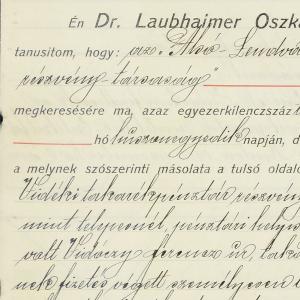 Én Dr. Laubhaimer Oszka
tanusítom, hogy: az „Alsó-Lendva
részvény-társaság"
megkeresésére ma, azaz egyezerkilenczszáz
hó huszonegyedik napján, d
a melynek szószerinti másolata a tulsó oldalo
Vidéki takarékpénztár részvén
mint telepesnél, pénztári helyis
volt Vidóczy Ferencz úr, taká
nek fizetés végett személyesen